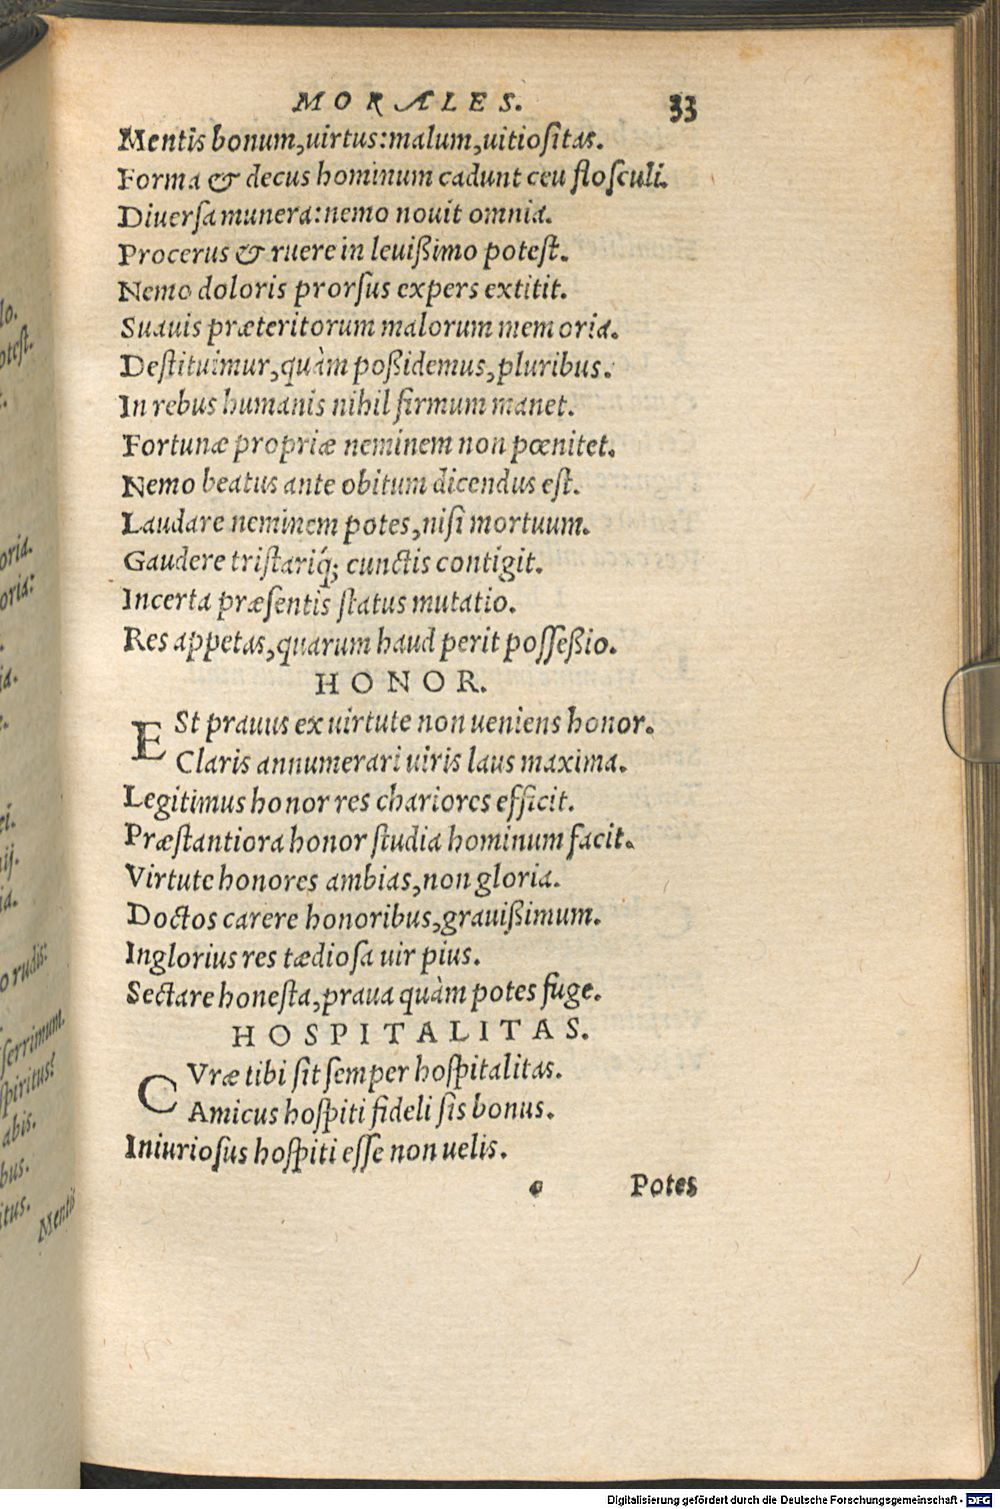 MORALES. 33
Mentis bonum, uirtus: malum, uitiositas.
Forma & decus hominum cadunt ceu flosculi.
Diuersa munera: nemo nouit omnia.
Procerus & ruere in leuißimo potest.
Nemo doloris prorsus expers extitit.
Suauis præteritorum malorum memoria.
Destituimur, quàm poßidemus, pluribus.
In rebus humanis nihil firmum manet.
Fortunæ propriæ neminem non pœnitet.
Nemo beatus ante obitum dicendus est.
Laudare neminem potes, nisi mortuum.
Gaudere tristariq́; cunctis contigit.
Incerta præsentis status mutatio.
Res appetas, quarum haud perit posseßio.
HONOR.
ESt prauus ex uirtute non ueniens honor.
Claris annumerari uiris laus maxima.
Legitimus honor res chariores efficit.
Præstantiora honor studia hominum facit.
Virtute honores ambias, non gloria.
Doctos carere honoribus, grauißimum.
Inglorius res tædiosa uir pius.
Sectare honesta, praua quàm potes fuge.
HOSPITALITAS.
CVræ tibi sit semper hospitalitas.
Amicus hospiti fideli sis bonus.
Iniuriosus hospiti esse non uelis.
e Potes
lo.
otest.
oria.
oria:
ia.
ei.
ij.
ia.
o rudis:
serrimum.
spiritus:
abis.
bus.
itus.
Mentis
Digitalisierung gefördert durch die Deutsche Forschungsgemeinschaft - DFG